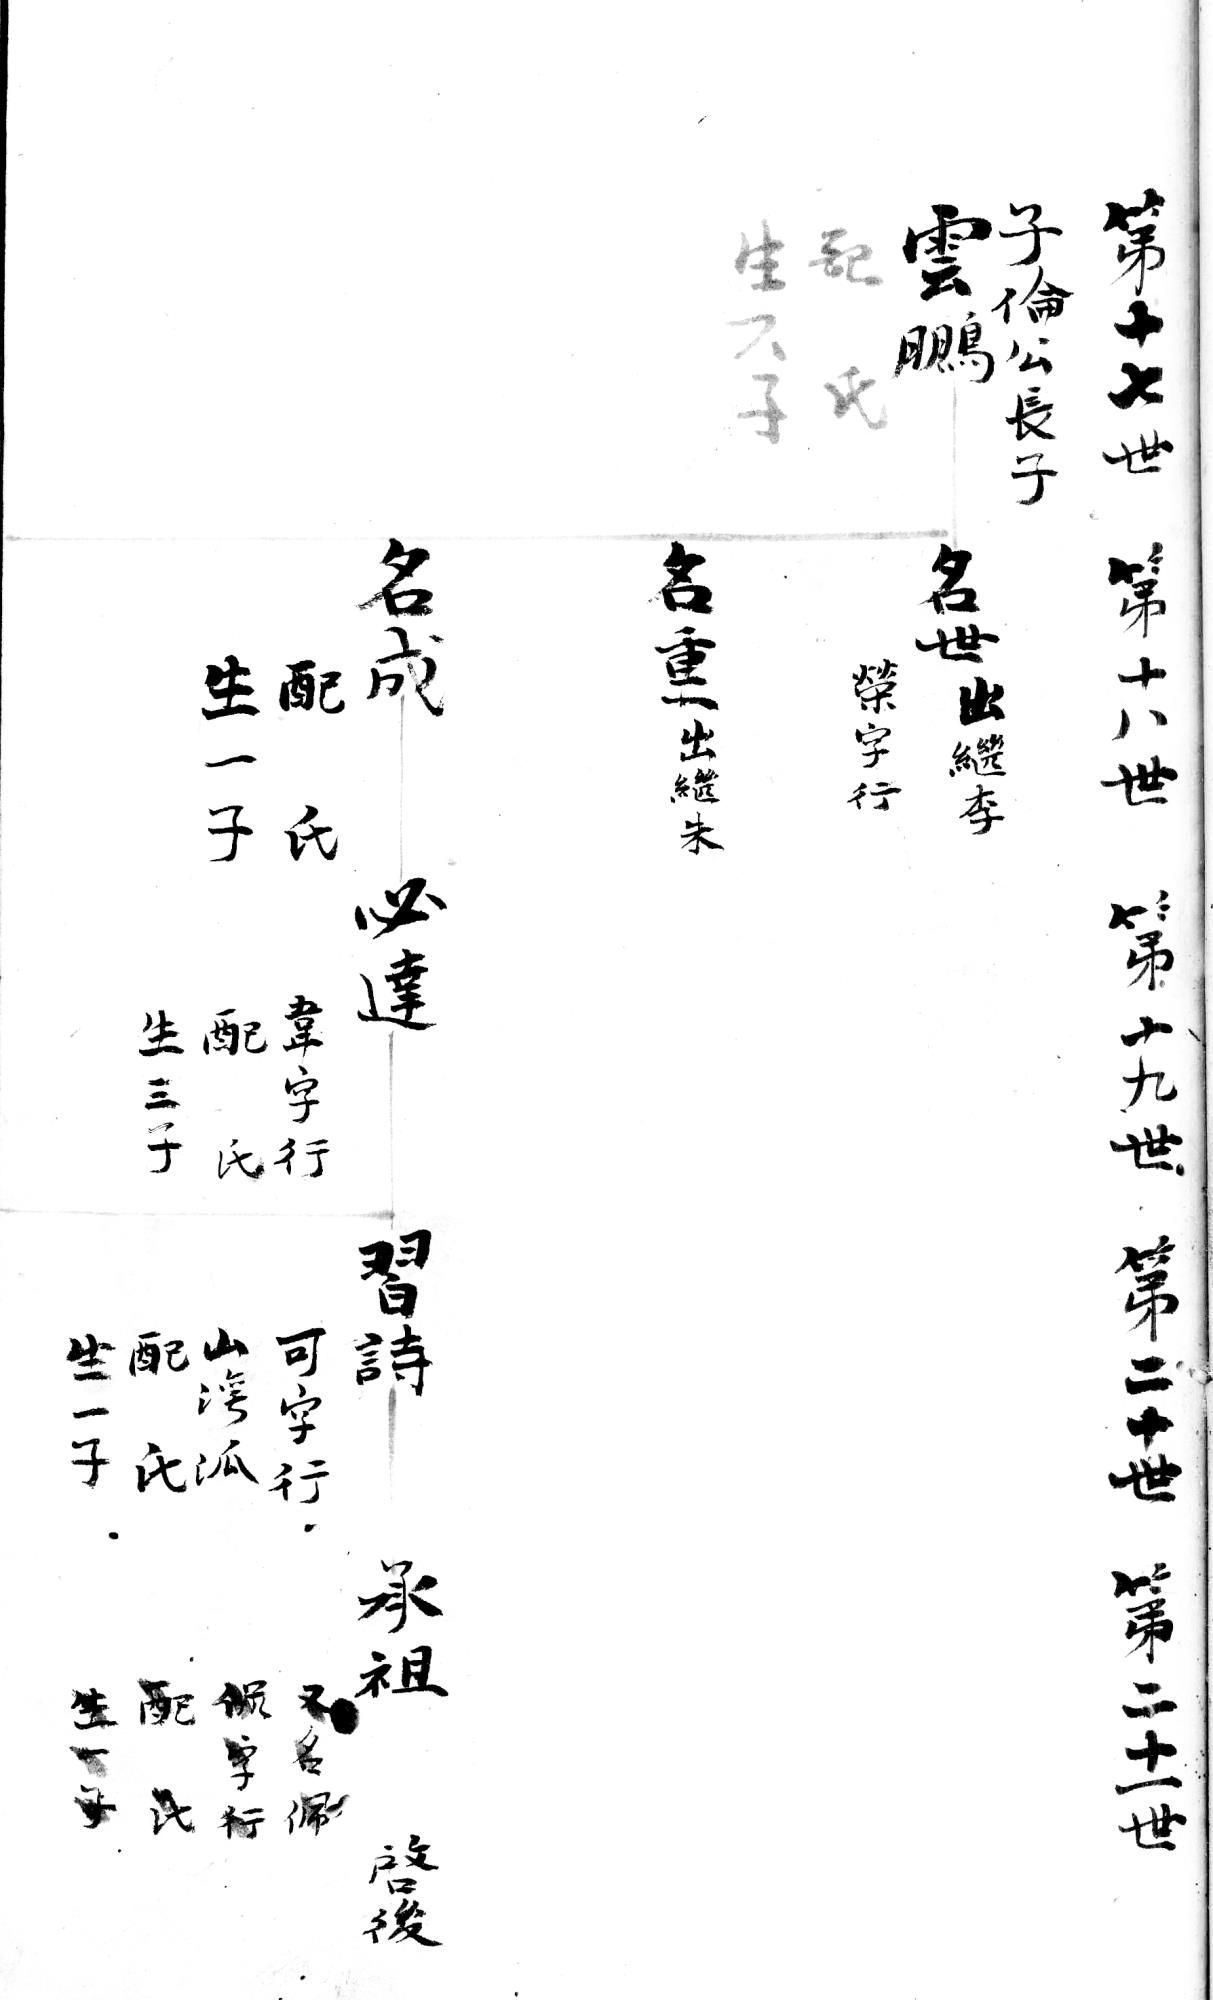 第十七世
第十八世
第十九世
第二十世
第二十一世
子倫公長子
雲鵬
配 氏
生六子
名世出繼李
榮字行
名重出繼朱
名成
配 氏
生一子
必達
韋字行
配 氏
生三子
習詩
可字行
山灣派
配 氏
生一子
承祖
又名佩
字行
配 氏
生一子
啓後